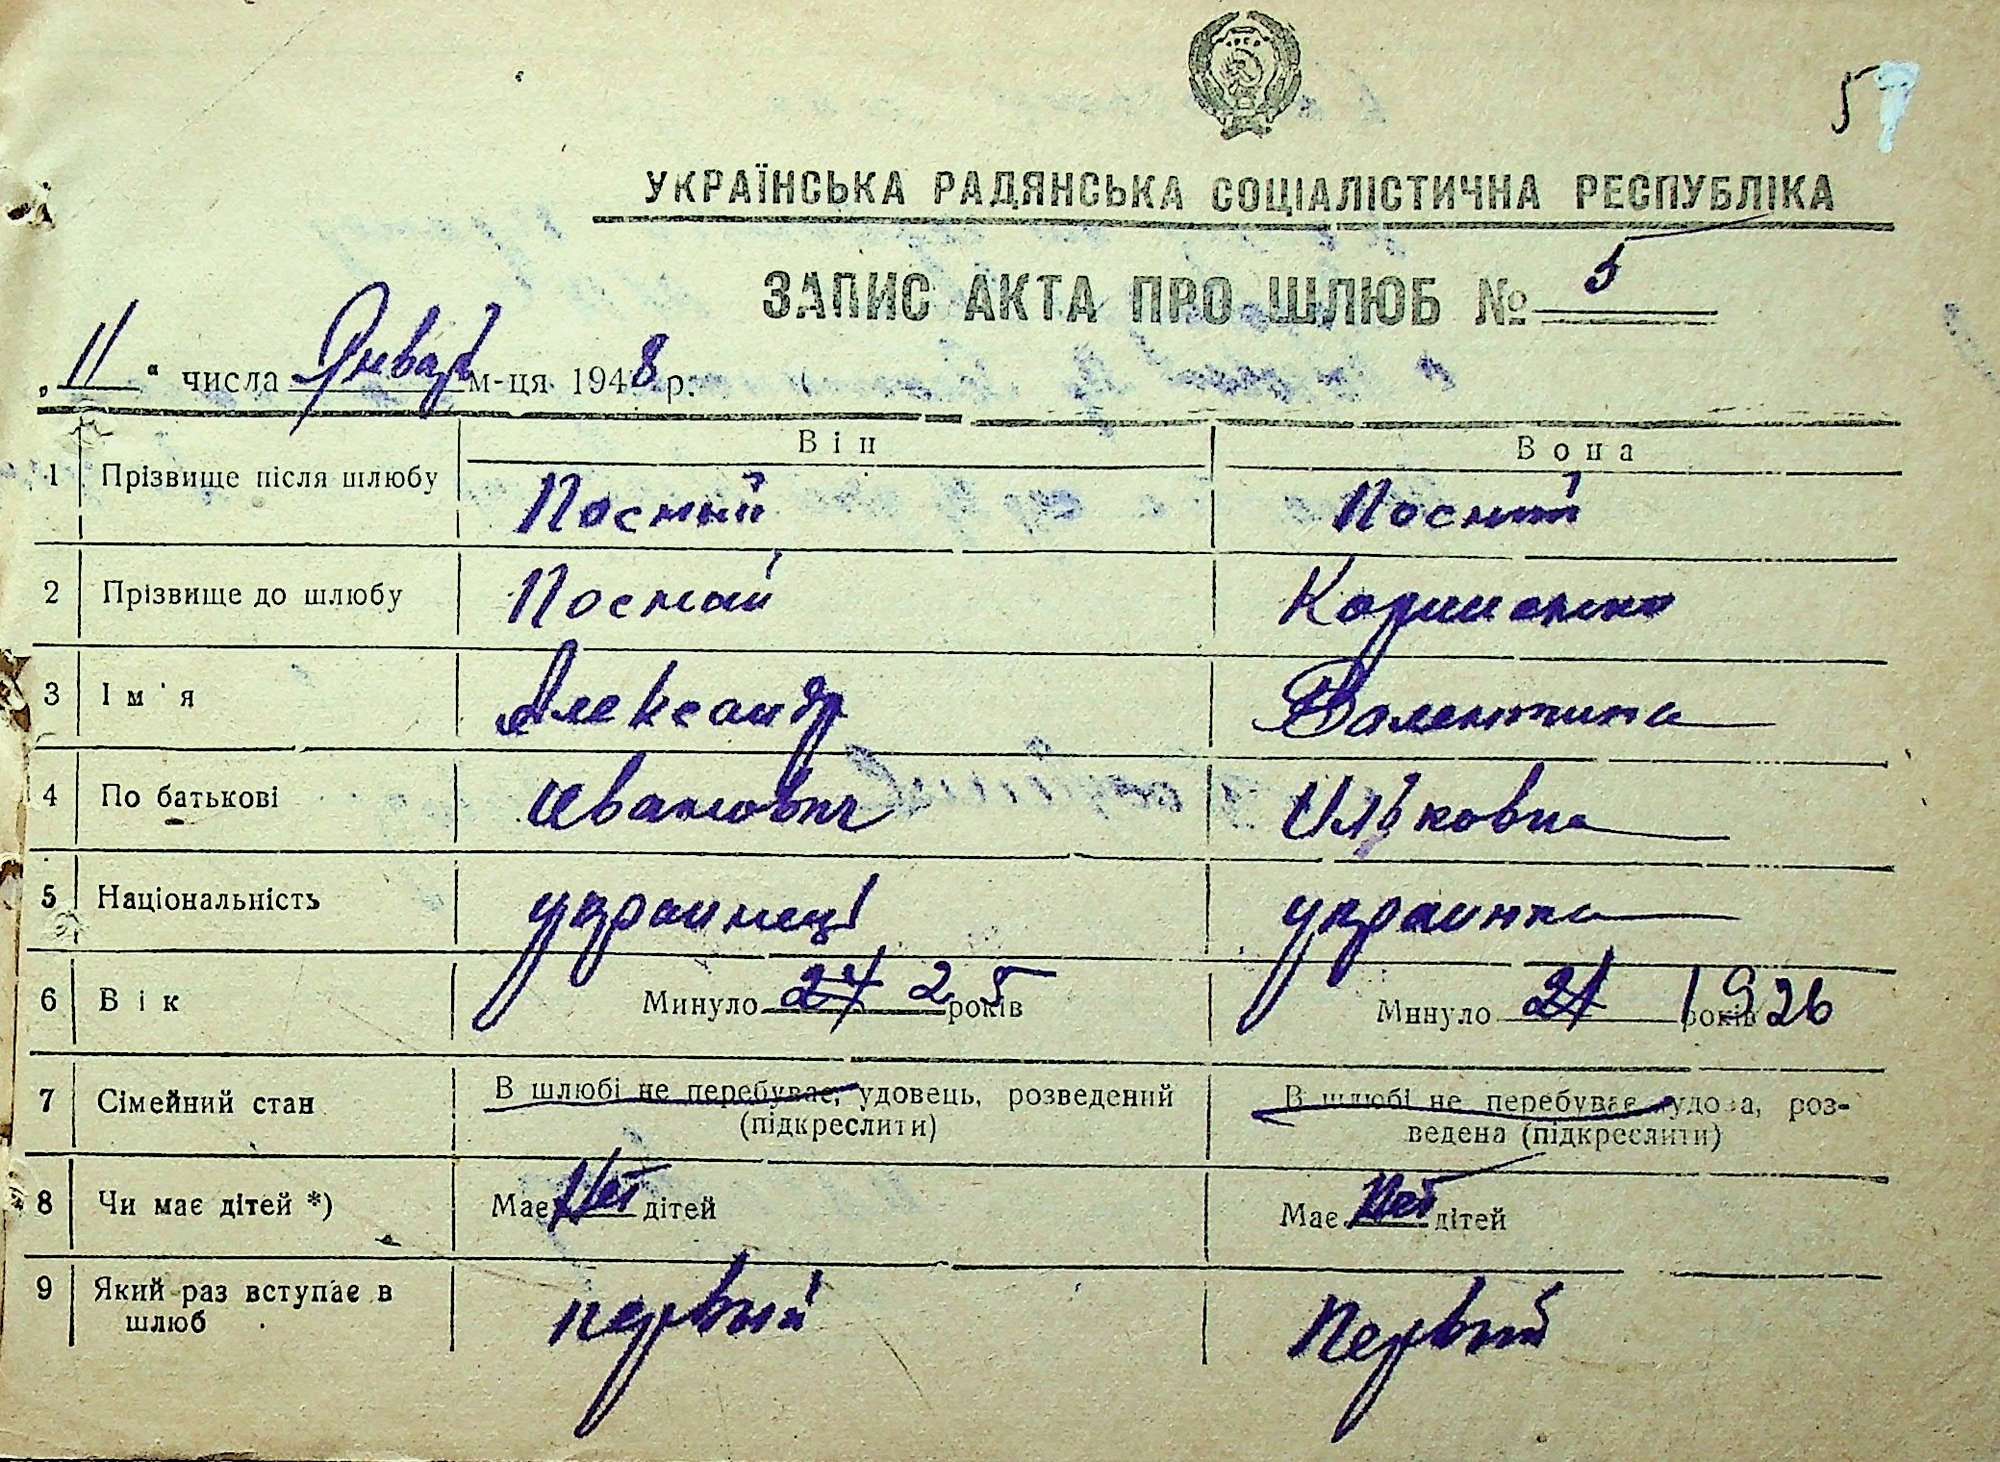 5
УКРАЇНСЬКА РАДЯНСЬКА СОЦІАЛІСТИЧНА РЕСПУБЛІКА
ЗАПИС АКТА ПРО ШЛЮБ № 5
„11“ числа Январ м-ця 1948 р.
Він Вона
1 Прізвище після шлюбу Посный Посний
2 Прізвище до шлюбу Посный
3 Ім'я Александр Валентина
4 По батькові Иванович Ильковна
5 Національність украинец украинка
6 Вік Минуло 24 25 років Минуло 21 років 1926
7 Сімейний стан В шлюбі не перебуває, удовець, розведений (підкреслити) В шлюбі не перебуває, удова, роз-
ведена (підкреслити)
8 Чи має дітей *) Має нет дітей Має нет дітей
9 Який раз вступає в шлюб первый Первый